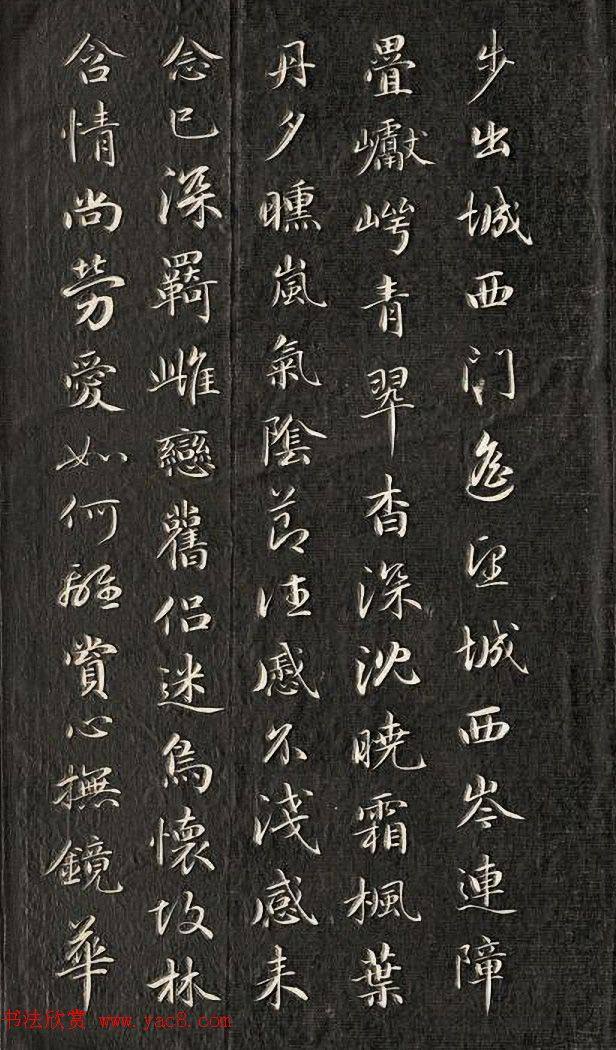 步出城西門遙望城西岑連障
疊巘崿青翠杳深沈曉霜楓葉
丹夕曛嵐氣陰節往慼不淺感来
念已深羇雌戀舊侶迷鳥懷故林
含情尚勞愛如何離賞心撫鏡華
书法欣赏 www.yac8.com